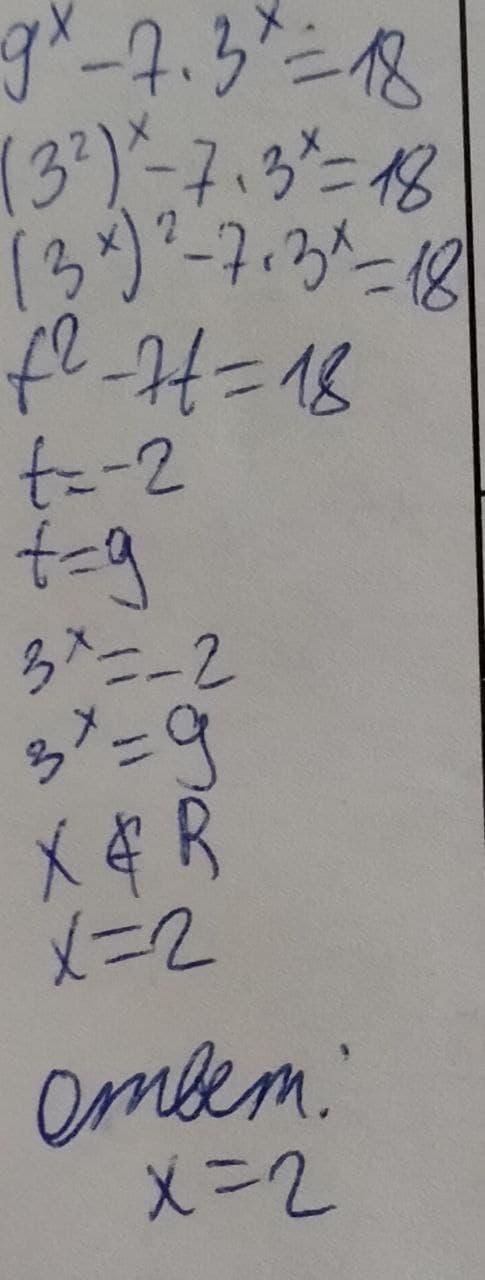 9ˣ - 7 · 3ˣ = 18
(3²)ˣ - 7 · 3ˣ = 18
(3ˣ)² - 7 · 3ˣ = 18
t² - 7t = 18
t = -2
t = 9
3ˣ = -2
3ˣ = 9
x ∉ R
x = 2
Ответ:
x = 2